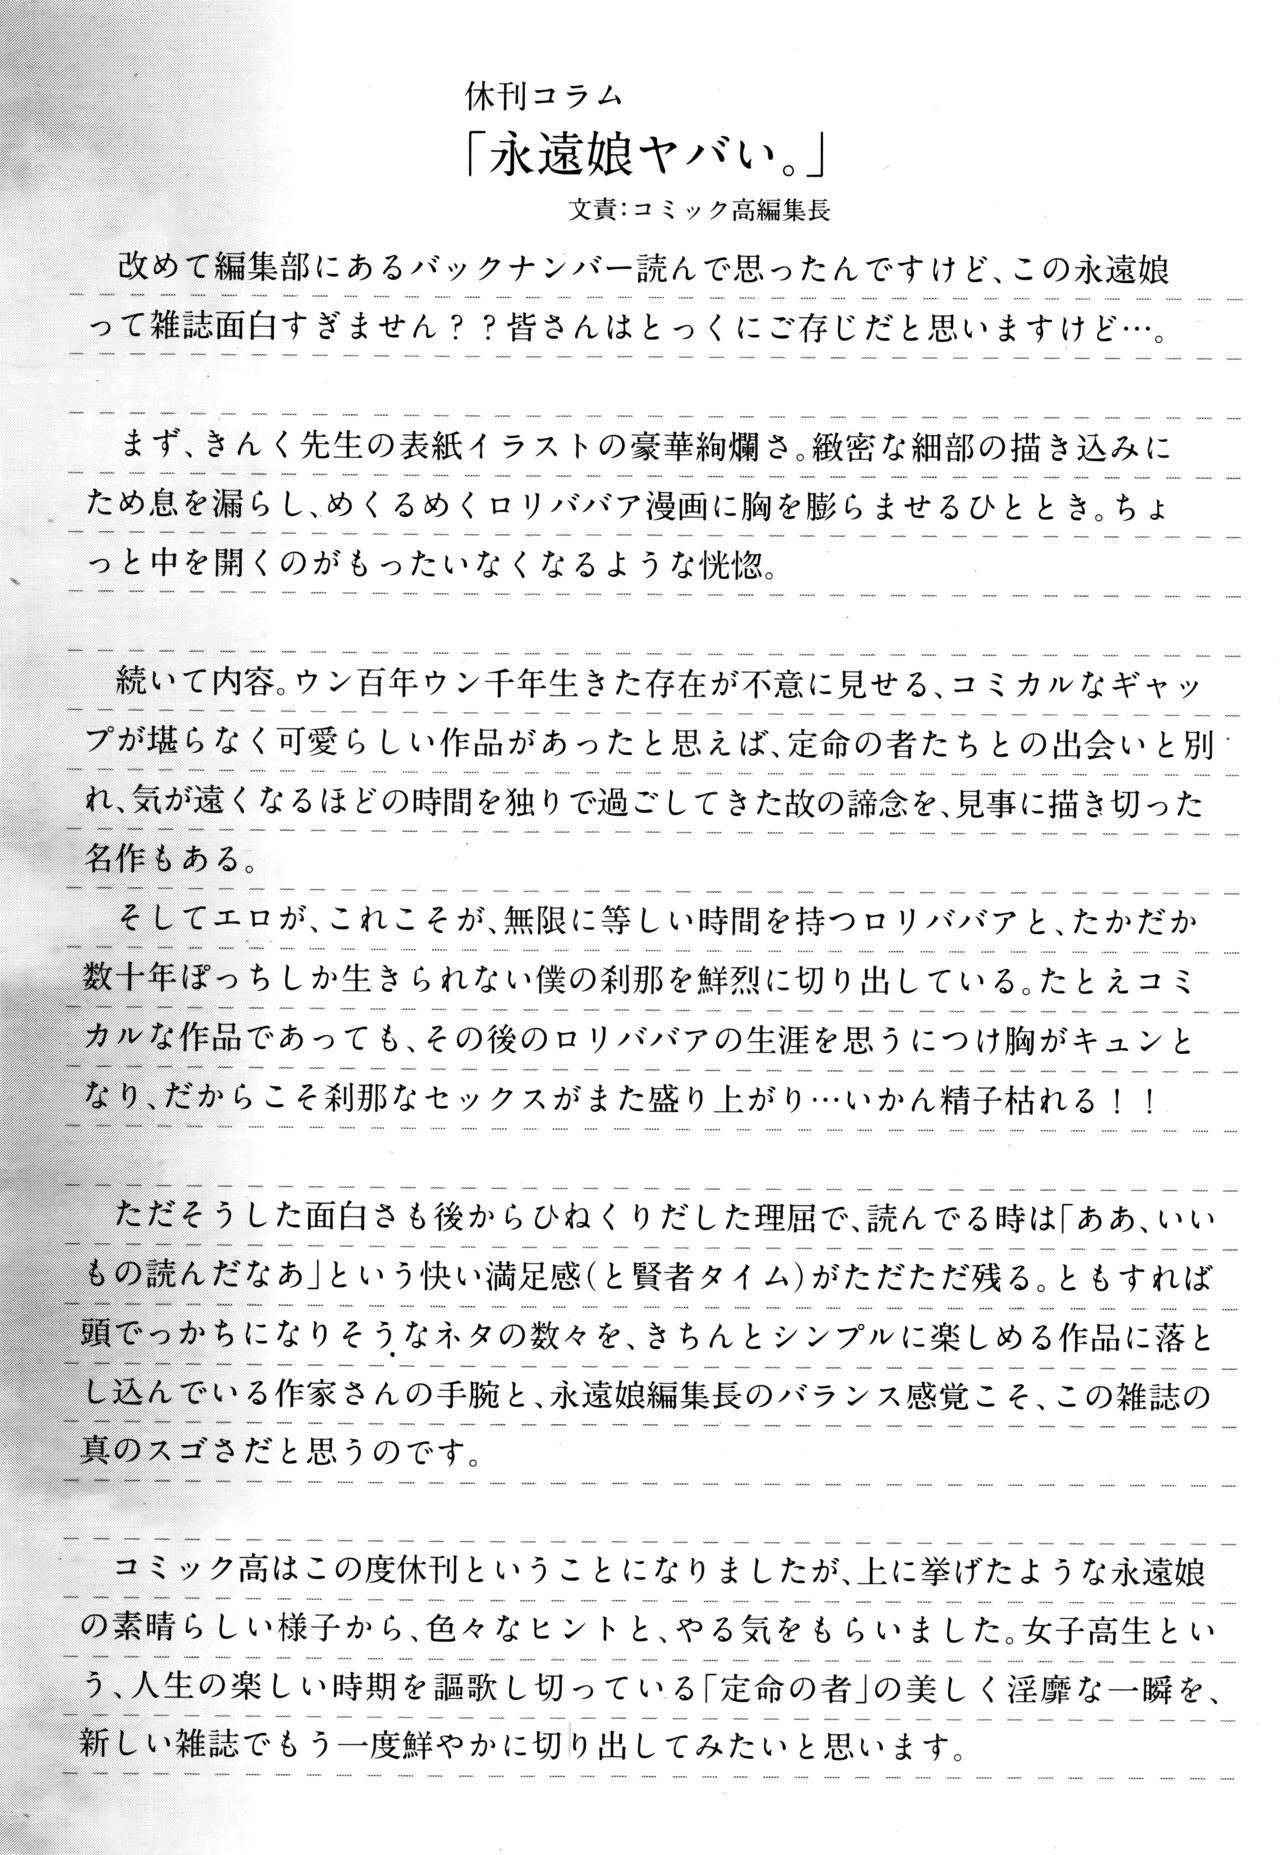 休刊コラム
「永遠娘ヤバい。」
文責：コミック高編集長
改めて編集部にあるバックナンバー読んで思ったんですけど、この永遠娘
って雑誌面白すぎません？？皆さんはとっくにご存じだと思いますけど…。
まず、きんく先生の表紙イラストの豪華絢爛さ。緻密な細部の描き込みに
ため息を漏らし、めくるめくロリババア漫画に胸を膨らませるひととき。ちょ
っと中を開くのがもったいなくなるような恍惚。
続いて内容。ウン百年ウン千年生きた存在が不意に見せる、コミカルなギャッ
プが堪らなく可愛らしい作品があったと思えば、定命の者たちとの出会いと別
れ、気が遠くなるほどの時間を独りで過ごしてきた故の諦念を、見事に描き切った
名作もある。
そしてエロが、これこそが、無限に等しい時間を持つロリババアと、たかだか
数十年ぽっちしか生きられない僕の刹那を鮮烈に切り出している。たとえコミ
カルな作品であっても、その後のロリババアの生涯を思うにつけ胸がキュンと
なり、だからこそ刹那なセックスがまた盛り上がり…いかん精子枯れる！！
ただそうした面白さも後からひねくりだした理屈で、読んでる時は「ああ、いい
もの読んだなあ」という快い満足感（と賢者タイム）がただただ残る。ともすれば
頭でっかちになりそうなネタの数々を、きちんとシンプルに楽しめる作品に落と
し込んでいる作家さんの手腕と、永遠娘編集長のバランス感覚こそ、この雑誌の
真のスゴさだと思うのです。
コミック高はこの度休刊ということになりましたが、上に挙げたような永遠娘
の素晴らしい様子から、色々なヒントと、やる気をもらいました。女子高生とい
う、人生の楽しい時期を謳歌し切っている「定命の者」の美しく淫靡な一瞬を、
新しい雑誌でもう一度鮮やかに切り出してみたいと思います。